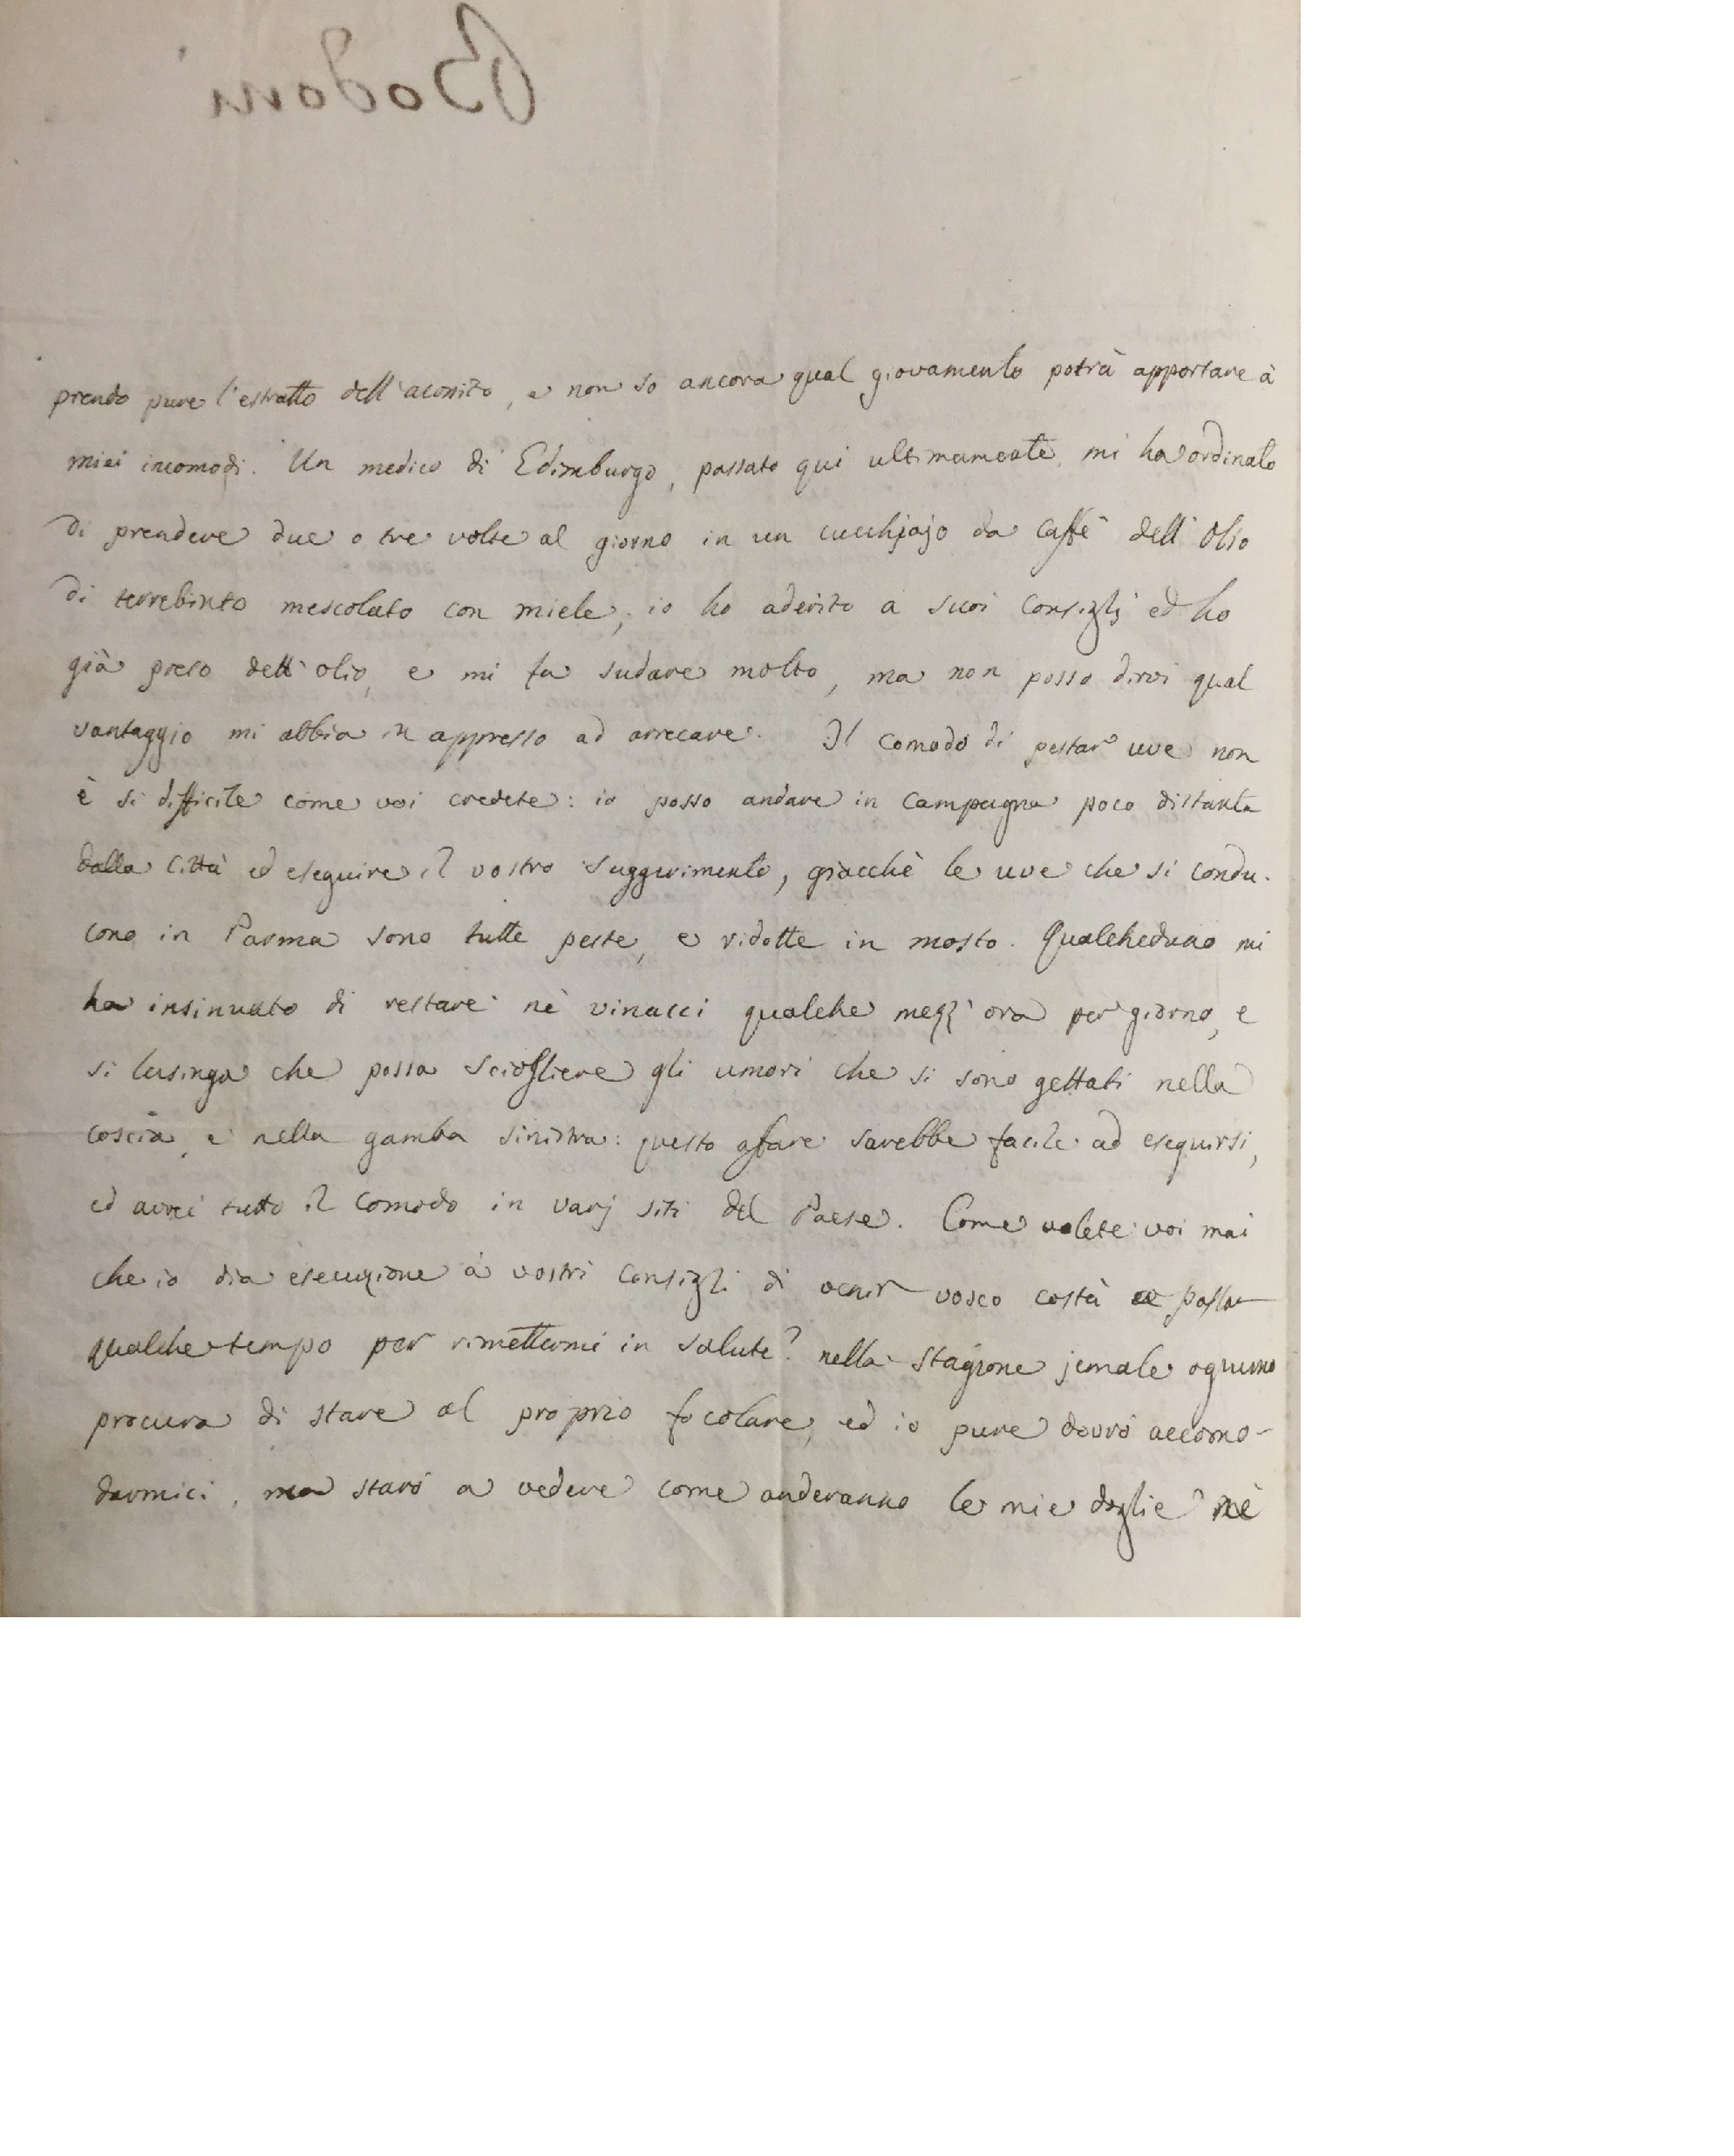 Bodoni
prendo pure l'estratto dell'aconito, e non so ancora qual giovamento potrà apportare à
miei incomodi. Un medico di Edimburgo, passato qui ultimamente, mi ha ordinato
di prendere due o tre volte al giorno in un cucchjajo da caffè dell'olio
di terrebinto mescolato con miele; io ho aderito a suoi consiglj ed ho
già preso dell'olio, e mi fa sudare molto, ma non posso dirvi qual
vantaggio mi abbia in appresso ad arrecare. Il comodo di pestar uve non
è si difficile come voi credete: io posso andare in campagna poco distante
dalla Città ed eseguire il vostro suggerimento, giacchè le uve che si condu-
cono in Parma sono tutte peste, e ridotte in mosto. Qualcheduno mi
ha insinuato di restare nè vinacci qualche mezz'ora per giorno, e
si lusinga che possa sciogliere gli umori che si sono gettati nella
coscia, e nella gamba sinistra: questo affare sarebbe facile ad eseguirsi,
ed avrei tutto il comodo in varj siti del Paese. Come volete voi mai
che io dia esecuzione à vostri consigli di venir vosco costà a passar
qualche tempo per rimettermi in salute? nella stagione jemale ognuno
procura di stare al proprio focolare, ed io pure dovrò accomo-
darmici, ma starò a vedere come anderanno le mie doglie nè